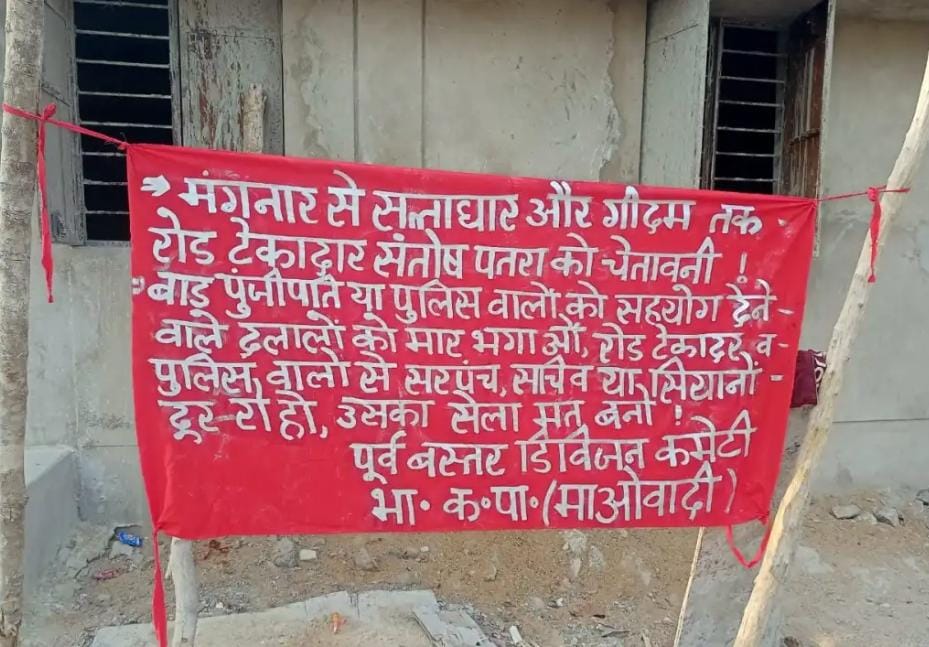 → मंगनार से सत्ताघार और गीदम तक -
रोड टेकादार संतोष पतरा को चेतावनी !
बाड़ पुंजीपति या पुलिस वालों को सहयोग देने -
वाले दलालों को मार भगाओं, रोड टेकादर व -
पुलिस वालों से सरपंच, सचिव या सियानो -
दूर रो हो, उसका सेला मत बनो !
पूर्व बस्तर डिविजन कमेटी
भा० क०पा०(माओवादी)